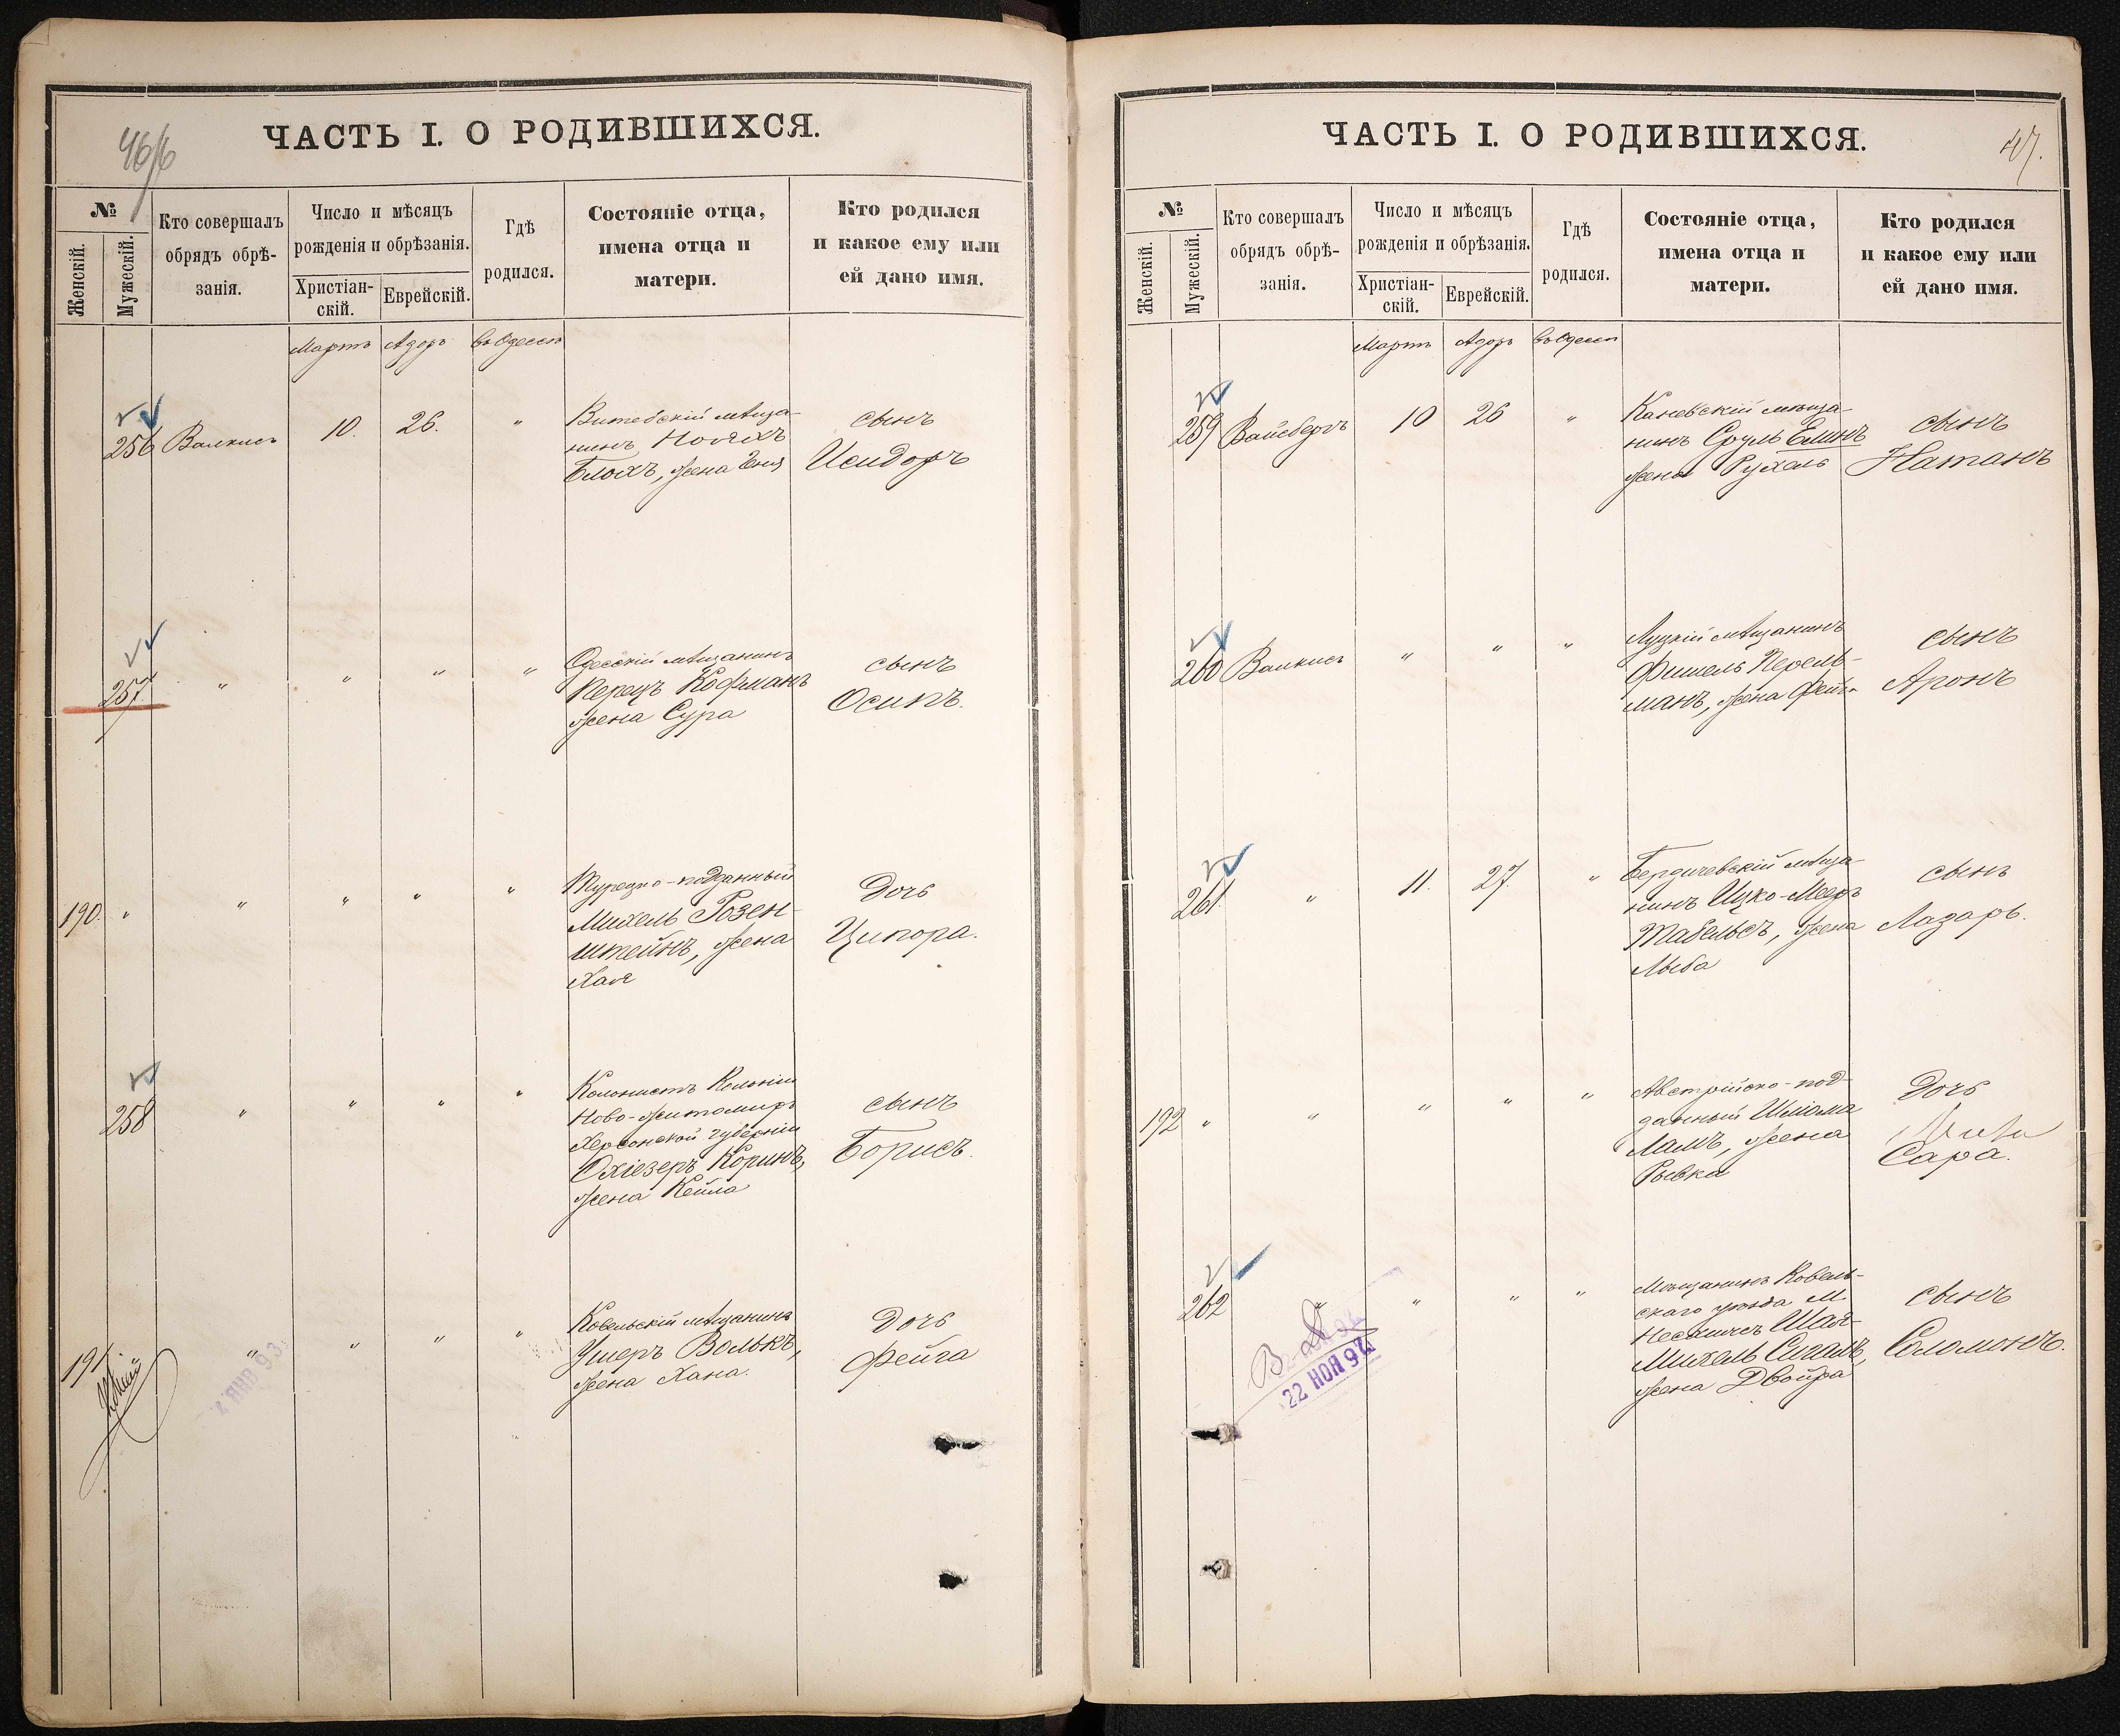 46
ЧАСТЬ I. О РОДИВШИХСЯ.
№
Женскій.
Мужескій.
Кто совершалъ
обрядъ обрѣ-
занія.
Число и мѣсяцъ
рожденія и обрѣзанія.
Христіан-
скій.
Еврейскій.
Гдѣ
родился.
Состояніе отца,
имена отца и
матери.
Кто родился
и какое ему или
ей дано имя.
Мартъ Адоръ въ Одессѣ
256 Валкисъ 10. 26. "
Витебскій мѣща-
нинъ
Блохъ, жена Геня
сынъ
Исидоръ
257 " " " "
Одесскій мѣщанинъ
Перецъ Кофманъ
жена Сура
сынъ
Осипъ.
190. " " " " "
Турецко-подданный
Михель Розен-
штейнъ, жена
Хая
Дочь
Ципора.
258 " " " "
Колонистъ Колоніи
Ново-Житомиръ
Херсонской губерніи
Охіезеръ Коринъ,
жена Кейла
сынъ
Борисъ.
191 " " " "
Ковельскій мѣщанинъ
Ушеръ Волькъ,
жена Хана.
Дочь
Фейга
ЯНВ 93
47.
ЧАСТЬ I. О РОДИВШИХСЯ.
№
Женскій.
Мужескій.
Кто совершалъ
обрядъ обрѣ-
занія.
Число и мѣсяцъ
рожденія и обрѣзанія.
Христіан-
скій.
Еврейскій.
Гдѣ
родился.
Состояніе отца,
имена отца и
матери.
Кто родился
и какое ему или
ей дано имя.
Мартъ Адоръ въ Одессѣ
259 Вайсбергъ 10 26 "
Каневскій мѣща-
нинъ Сруль Елинъ
жена Рухель
сынъ
Натанъ
260 Валкисъ " " "
Луцкій мѣщанинъ
Фишель Перель-
манъ, жена
сынъ
Аронъ
261. " 11. 27. "
Бердичевскій мѣща-
нинъ Ицко-Мееръ
Табельсъ, жена
Лыба
сынъ
Лазарь.
192 " " " " "
Австрійско-под-
данный Шліома
Ламъ, жена
Рывка
Дочь
Сара.
262 " " " "
Мѣщанинъ Ковель-
скаго уѣзда м.
Несхичсъ Шая-
Михель Сигалъ,
жена Двойра
сынъ
Соломонъ.
22 НОЯ 92